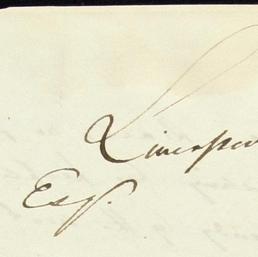 Liverpoo
Esq.